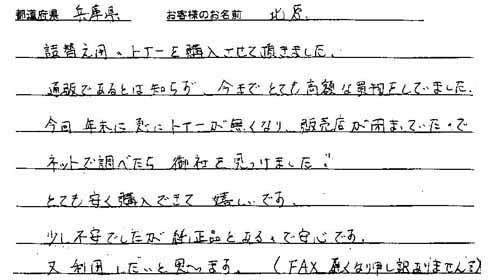 都道府県 兵庫県 お客様のお名前 北原
詰替え用のトナーを購入させて頂きました。
通販であるとは知らず、今までとても高額な買物をしていました。
今回 年末に 急に トナーが無くなり、販売店が閉まっていたので
ネットで調べたら 御社を見つけました!
とても安く購入できて 嬉しいです。
少し不安でしたが 純正品とあるので安心です。
又 利用したいと思います。 (FAX 悪くなり申し訳ありません!)